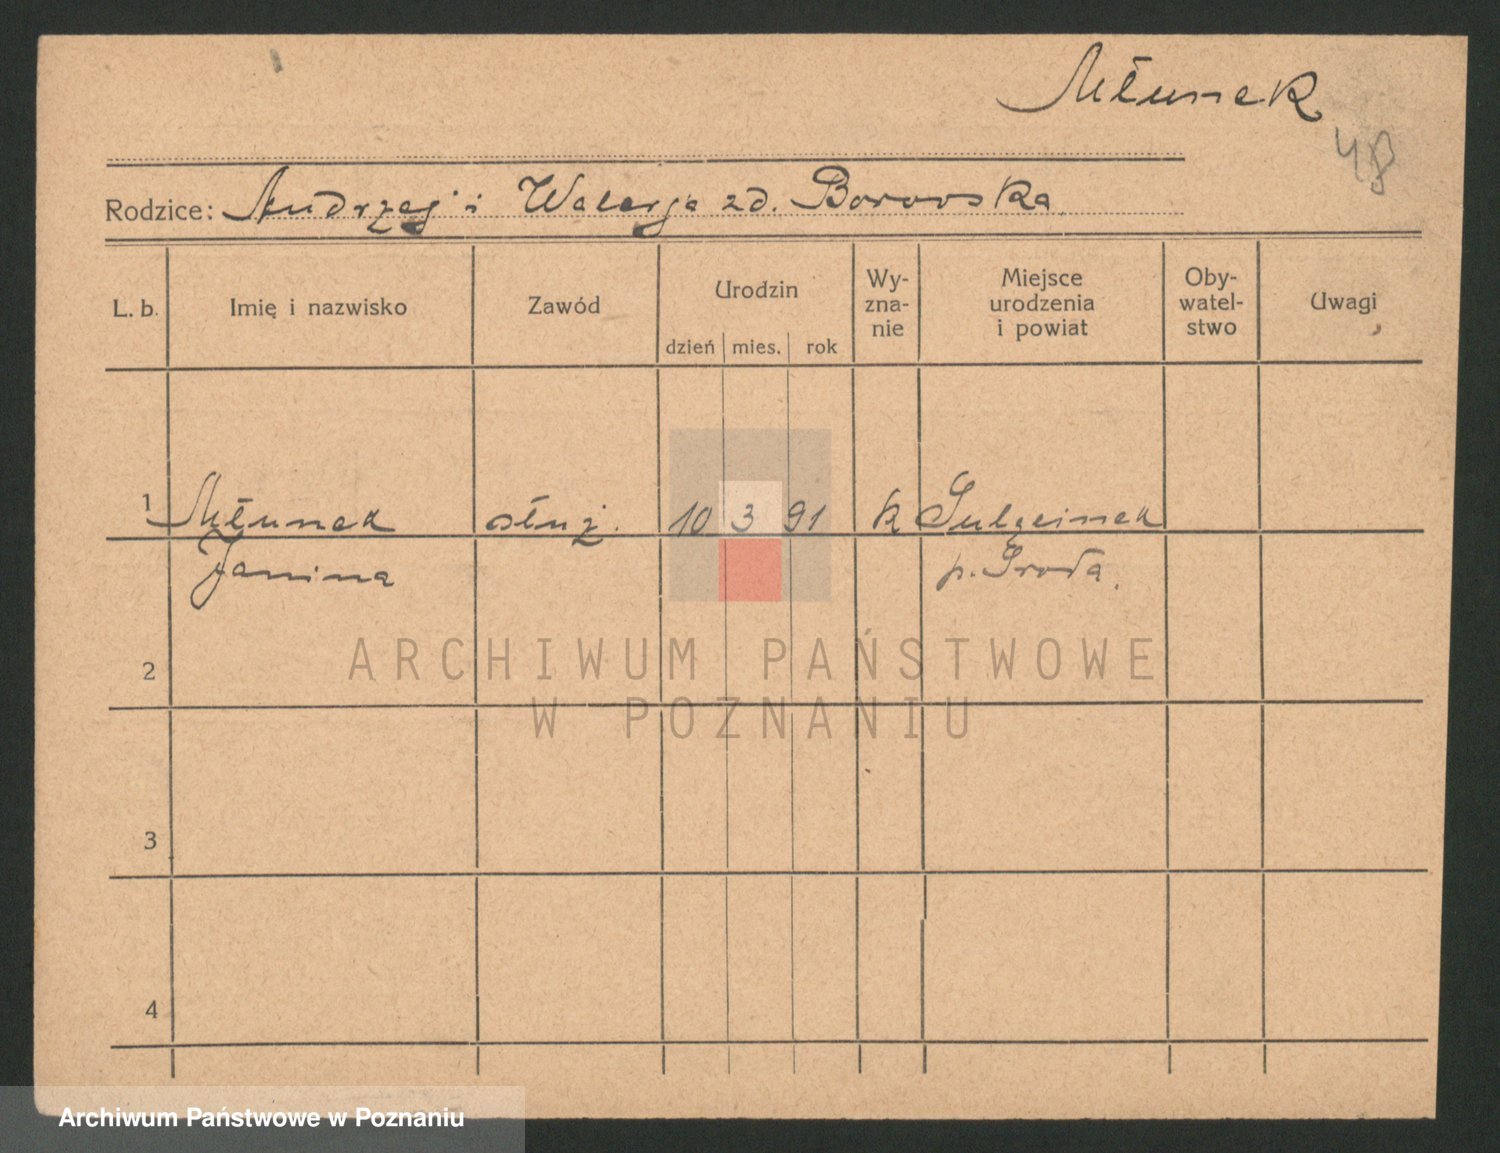 Młunek
48
Rodzice: Andrzej i Walerja zd. Borowska
L. b. Imię i nazwisko Zawód Urodzin dzień mies. rok Wy-zna-nie Miejsce urodzenia i powiat Oby-watel-stwo Uwagi
1 Młunek służ. 10 3 91 k Sulęcinek
Janina p. Środa.
2
ARCHIWUM PAŃSTWOWE
W POZNANIU
3
4
Archiwum Państwowe w Poznaniu